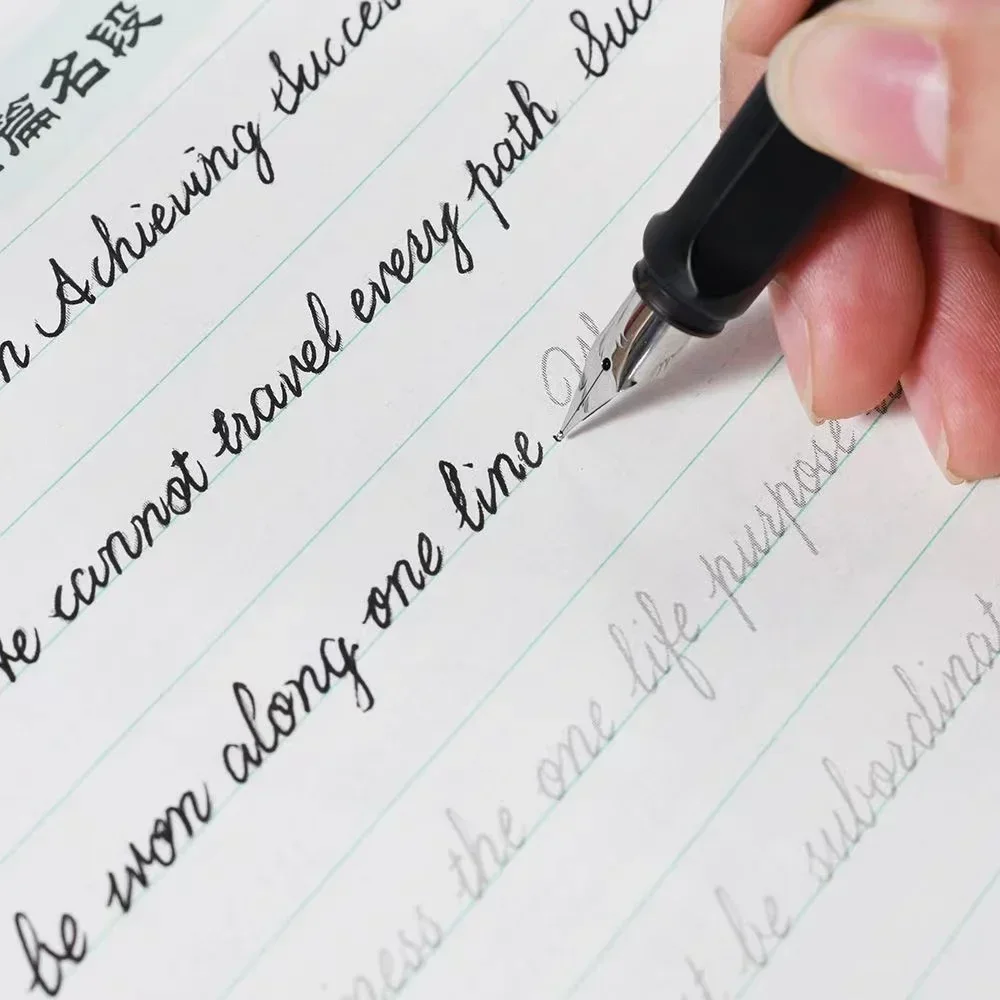 篇名段
Achieving Succe
cannot travel every path Suc
be won along one line
the one life purpose
be subordinat